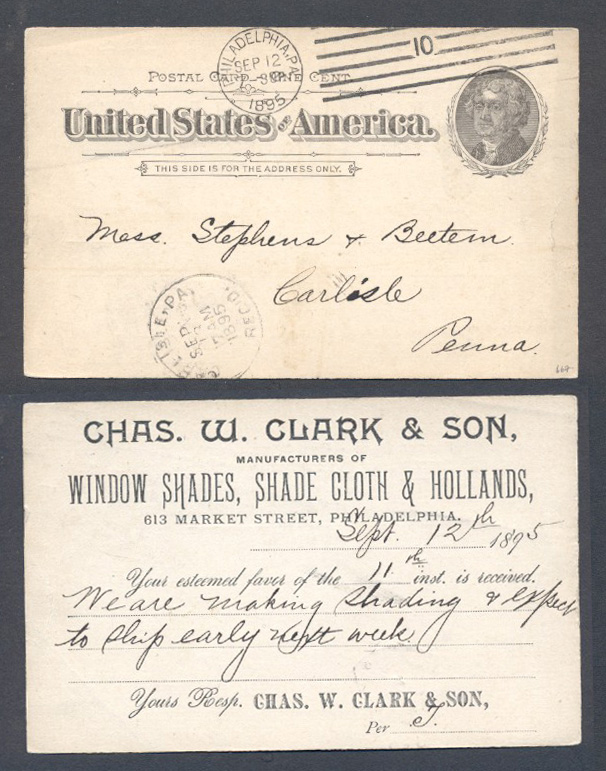 PHILADELPHIA, PA.
SEP 12
1895
10
POSTAL CARD - ONE CENT.
United States of America.
THIS SIDE IS FOR THE ADDRESS ONLY.
Mess. Stephens & Beetem.
Carlisle
Penna.
CARLISLE, PA.
SEP
AM
1895
REC'D.
CHAS. W. CLARK & SON,
MANUFACTURERS OF
WINDOW SHADES, SHADE CLOTH & HOLLANDS,
613 MARKET STREET, PHILADELPHIA.
Sept. 12th 1895
Your esteemed favor of the 11th inst. is received.
We are making Shading & expect
to ship early next week.
Yours Resp. CHAS. W. CLARK & SON,
Per